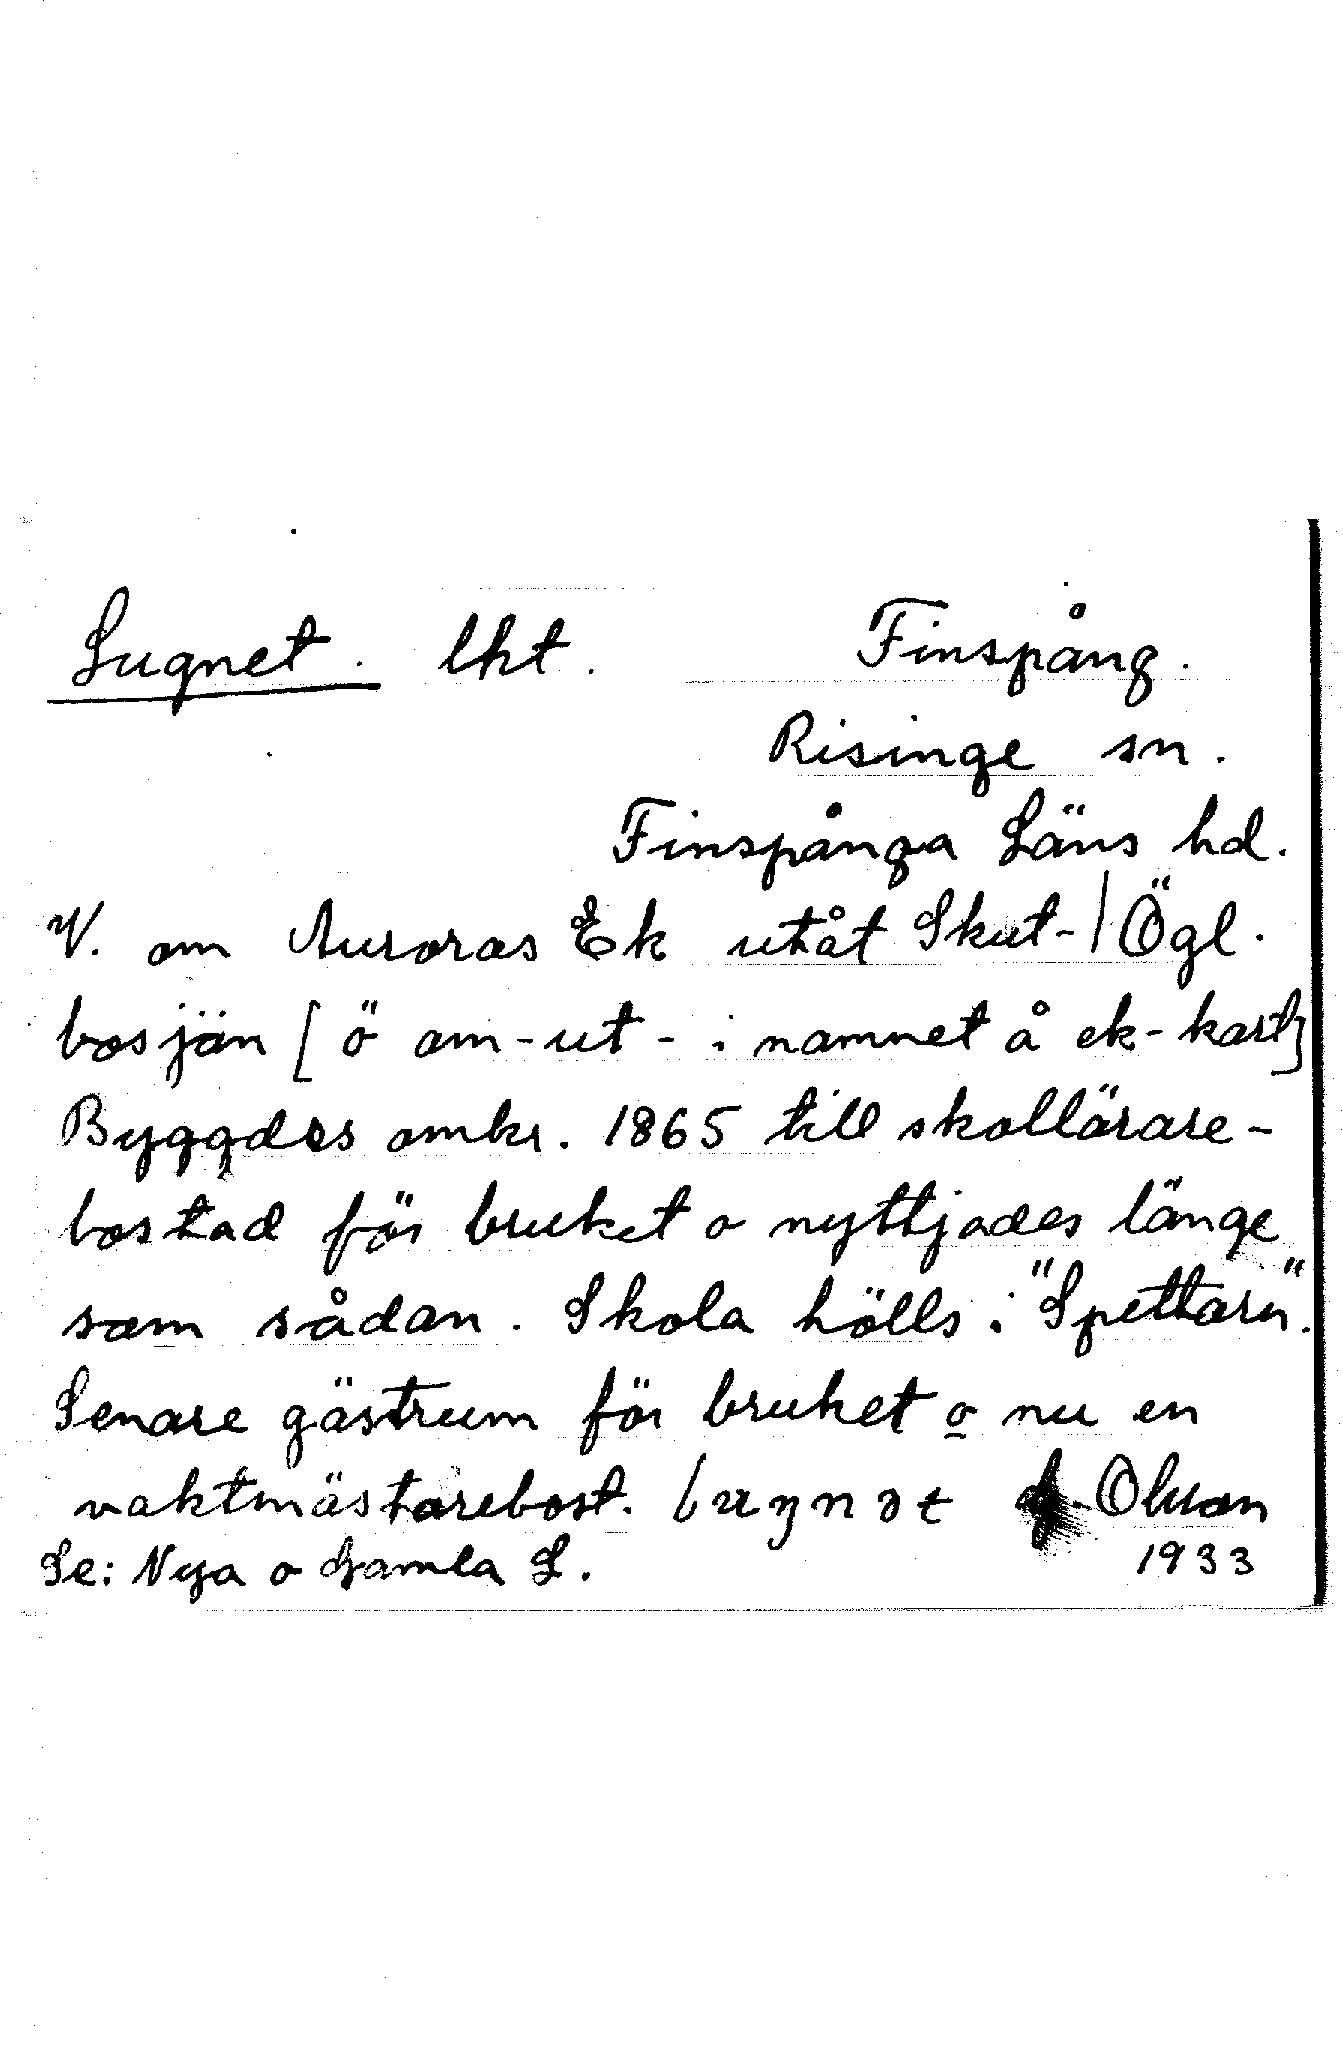 Lugnet. lht. Finspång.
Risinge sn.
Finspånga Läns hd.
V. om Auroras Ek utåt Skut- | Ögl.
bosjön [ö om -ut- i namnet å ek-kart]
Byggdes omkr. 1865 till skollärare-
bostad för bruket o nyttjades länge
som sådan. Skola hölls i "Spettarn".
Senare gästrum för bruket o nu en
vaktmästarebost.
Olsson
Se: Nya o Gamla L. 1933